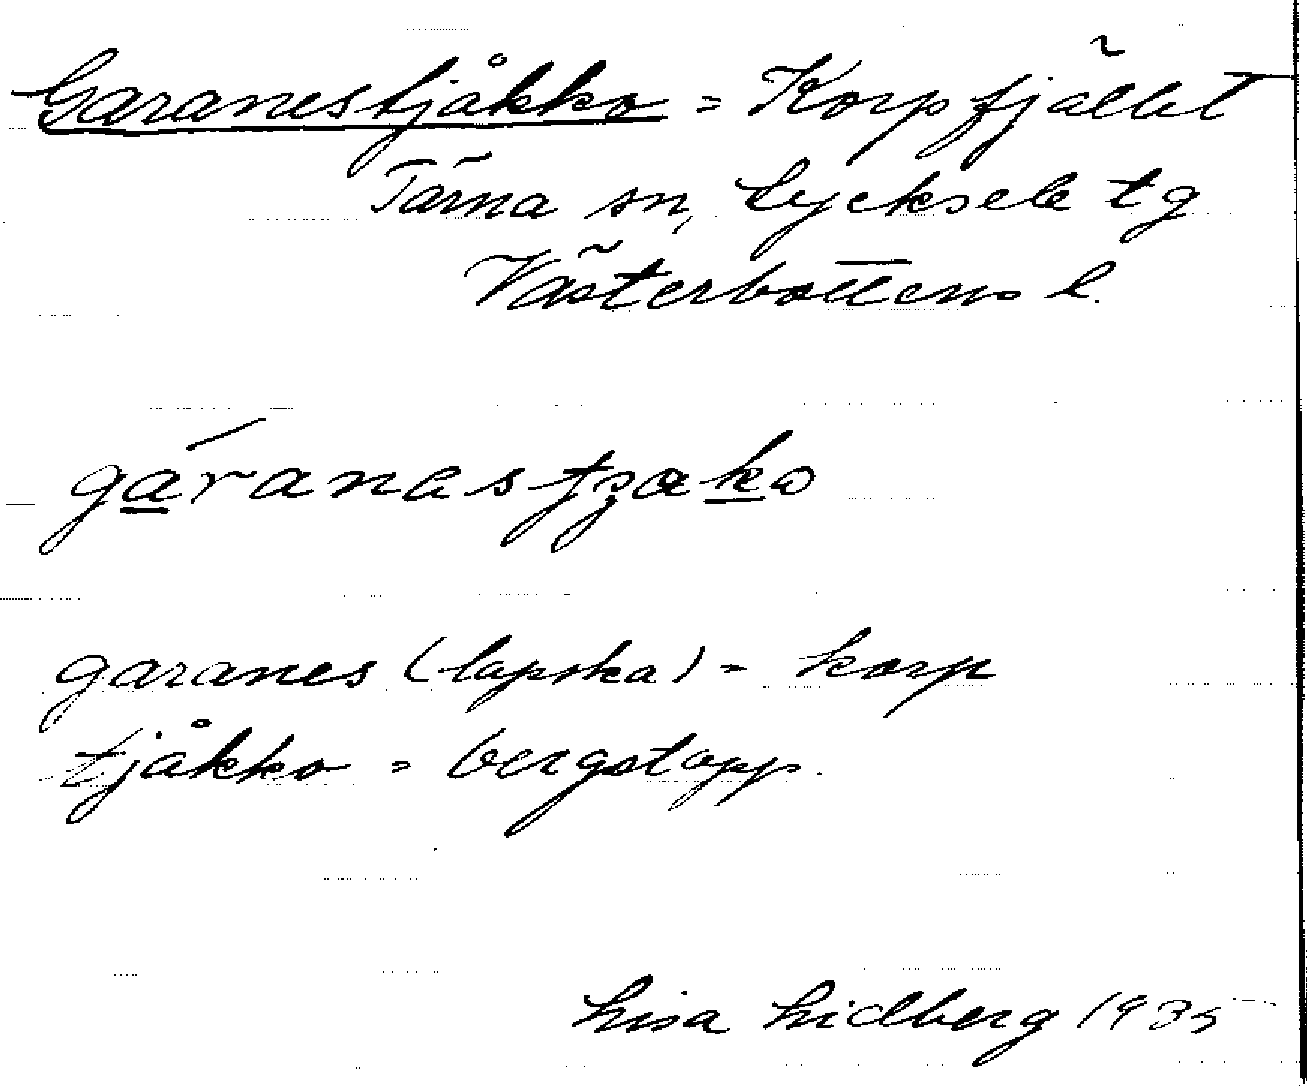 Garanestjåkko = Korpfjället
Tärna sn, Lycksele tg
Västerbottens l.
gáranastʒako
garanes (lapska) = korp
tjåkko = bergstopp.
Lisa Lidberg 1935